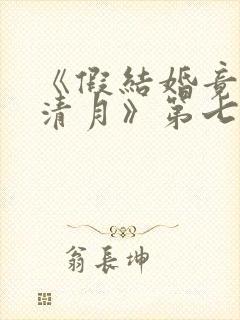 《假結婚竟
清月》第七
翁長坤